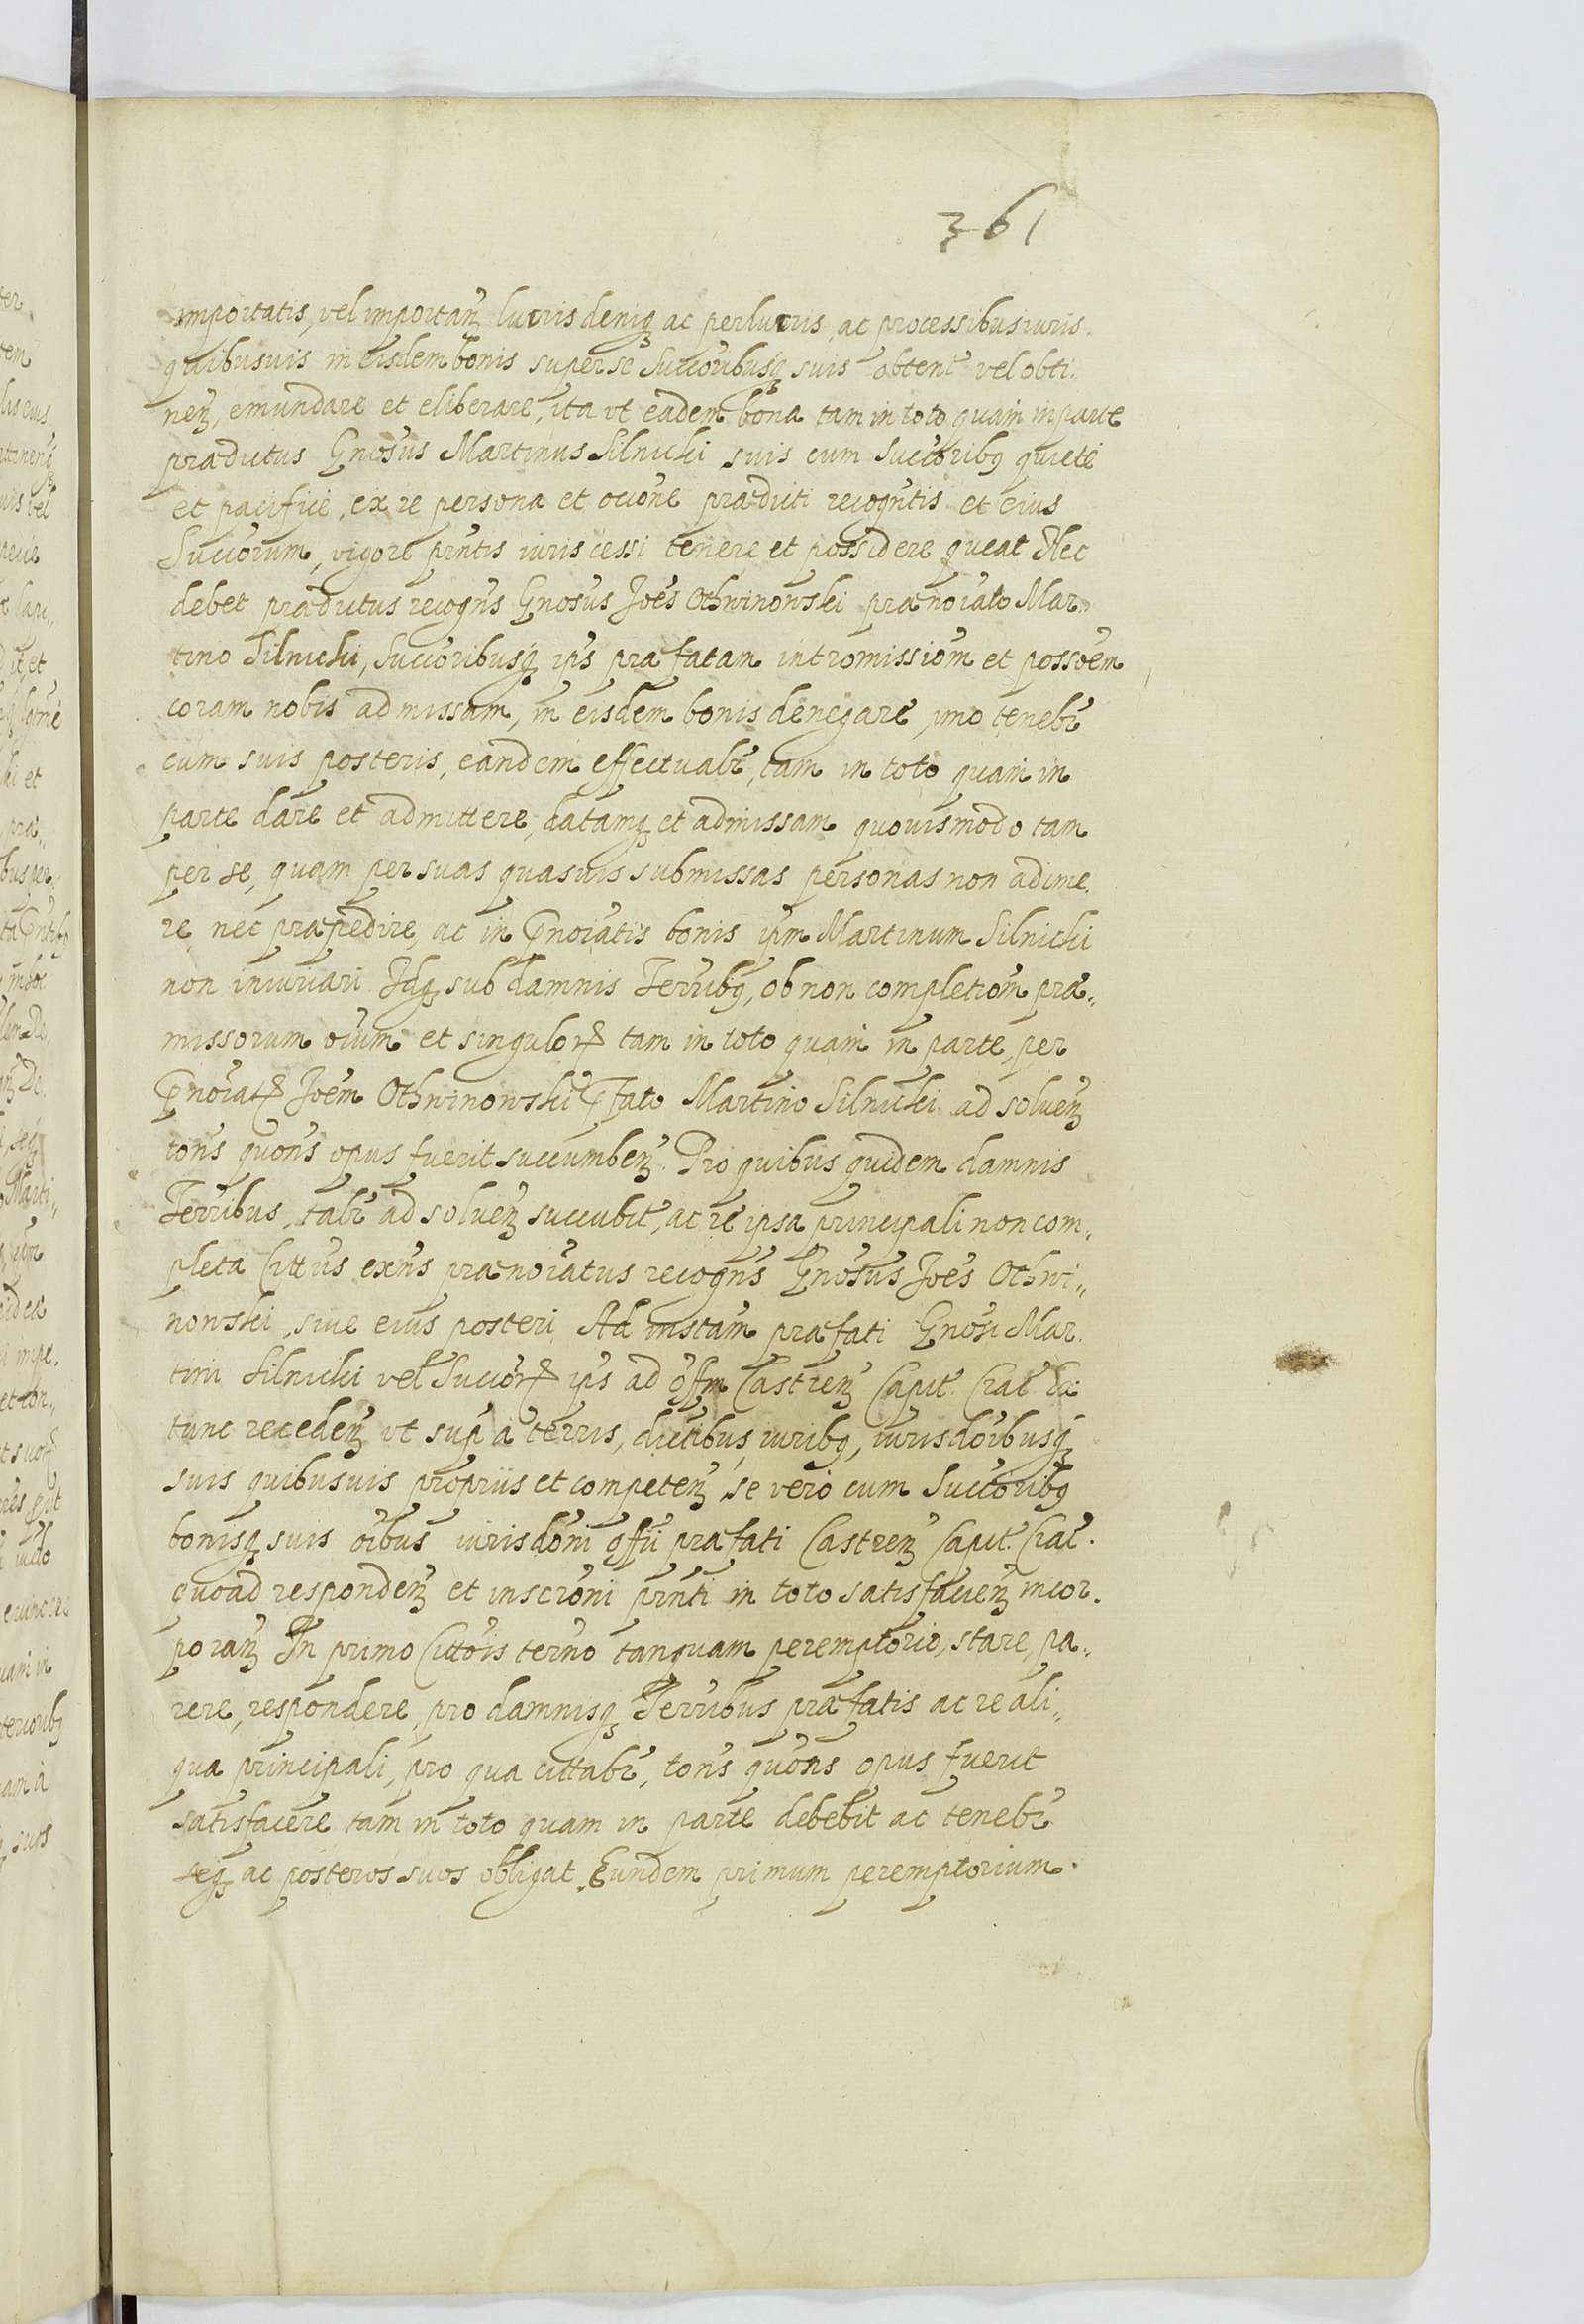 361
importatis, vel importan̄ lucris deniq̄ ac perlucris, ac processibus iuris
quibusuis in eisdem bonis super se Succoribusq̄ suis obtent̄ vel obti.
nen̄, emundare et eliberare, ita vt eadem bona tam in toto quam in parte
prædictus Gnosus Martinus Silnicki suis cum Succoribus quiete
et pacifice, ex re persona et occone prædicti recogntis et eius
Succorum, vigore pn̄tis iuris cessi tenere et possidere queat Nec
debet prædictus recogn̄s Gnosus Joēs Othwinowski prænoiato Mar„
tino Silnicki, Succoribusq̄ ip̄s præfatam intromissiōm et possōem
coram nobis admissam, in eisdem bonis denegare, imo tenebr̄
cum suis posteris, eandem effectuabr̄, tam in toto quam in
parte dare et admittere, datamq̄ et admissam quouismodo tam
per se, quam per suas quasuis submissas personas non adime.
re nec præpedire, ac in p̄noiatis bonis ip̄m Martinum Silnicki
non iniuriari Idq̄ sub damnis Terribus, ob non completiōm præ„
missorum oīum et singulor̄ tam in toto quam in parte, per
p̄noiat̄ Joēm Othwinowski p̄fato Martino Silnicki ad soluen̄
tons quons opus fuerit succumben̄. Pro quibus quidem damnis
Terribus, talr̄ ad soluen̄ succubit, ac re ipsa principali non com„
pleta Cittus exn̄s prænoiatus recogn̄s Gnosus Joēs Othwi„
nowski, siue eius posteri, Ad instam præfati Gnosi Mar.
tini Silnicki vel Succor̄ ip̄s ad offm Castren̄ Capit. Crac. Ex
tunc receden̄ vt sup̄ a terris, dictibus, iuribus, iurisdoibusq̄
suis quibusuis propriis et competen̄, se vero cum Succoribus
bonisq̄ suis oībus iurisdoni offii præfati Castren̄ Capit. Crac.
quoad responden̄ et inscroni pn̄ti in toto satisfacien̄ incor.
poran̄ In primo Cittois terno tanquam peremptorio, stare, pa„
rere, respondere, pro damnisq̄ Terribus præfatis ac re ali„
qua principali, pro qua cittabr̄, tons quons opus fuerit
satisfacere tam in toto quam in parte debebit ac tenebr̄
seq̄ ac posteros suos obligat, Eundem primum peremptorium